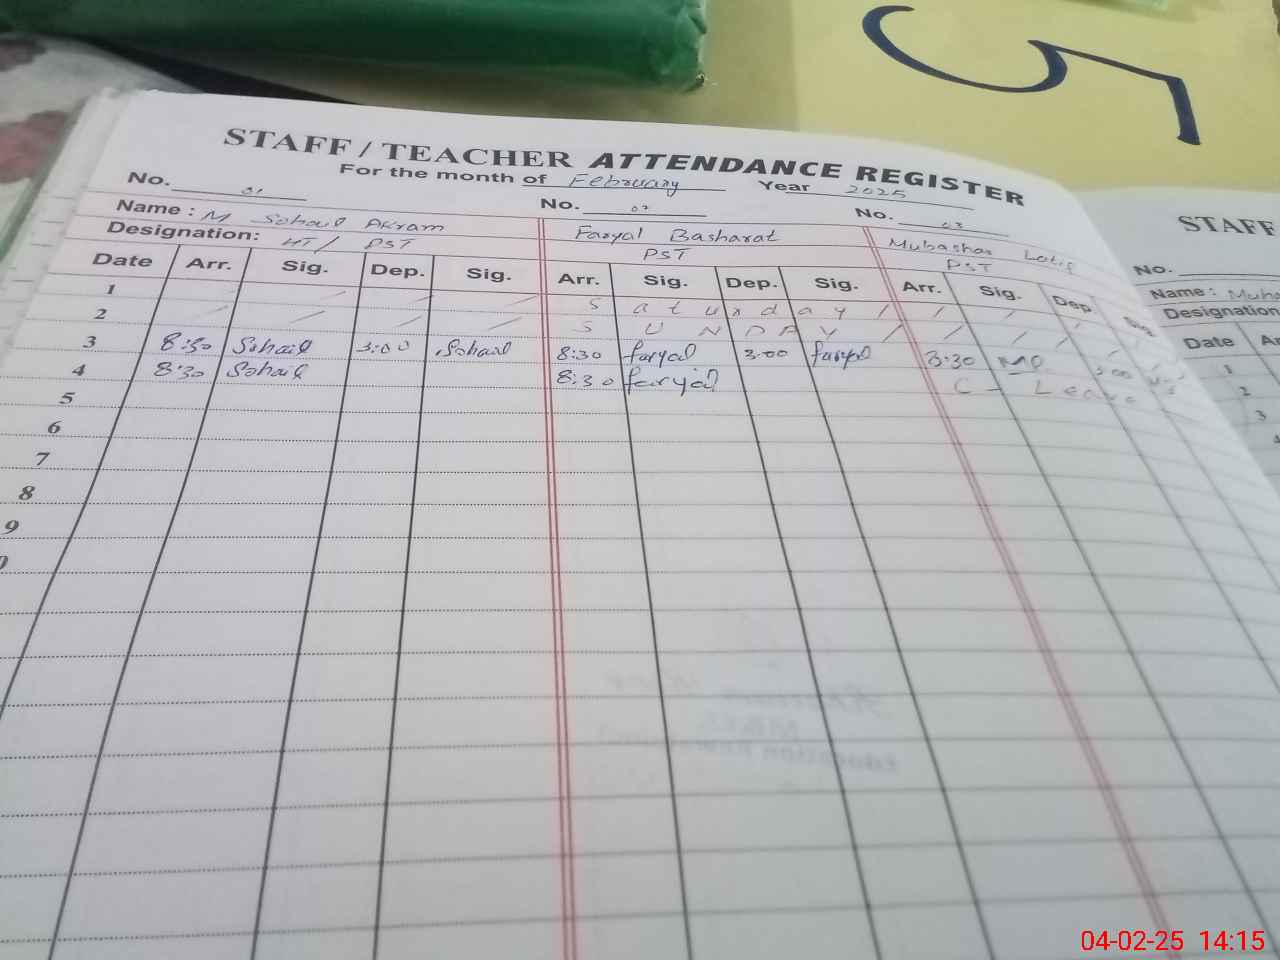 5
STAFF / TEACHER ATTENDANCE REGISTER
For the month of February Year 2025
No. 01 No. 02 No. 03
Name : M Sohail Akram Faryal Basharat Mubashar Latif
Designation: HT / PST PST PST
Date Arr. Sig. Dep. Sig. Arr. Sig. Dep. Sig. Arr. Sig. Dep. Sig.
1 / / / / S a t u r d a y / / / / /
2 / / / / S U N D A Y / / / / /
3 8:30 Sohail 3:00 Sohail 8:30 faryal 3:00 faryal 8:30 3:00
4 8:30 Sohail 8:30 faryal C - Leave
5
6
7
8
9
STAFF
No.
Name : Muba
Designation
Date Ar
1
2
3
04-02-25 14:15